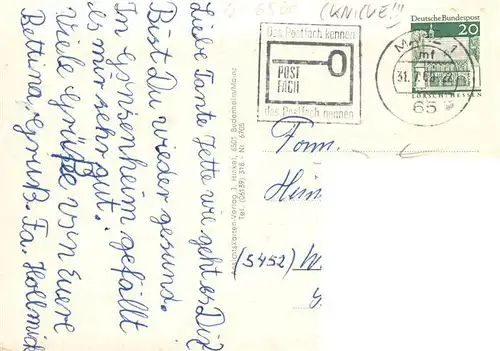 6500 (KNICKE!!)
Deutsche Bundespost
20
Das Postfach kennen
POST
FACH
das Postfach nennen
MAINZ 1
mf
31.7.
65
LORSCH/HESSEN
Liebe Tante Jette wie geht es Dir
Bist Du wieder gesund.
In Gonsenheim gefällt
es mir sehr gut.
Viele Grüße von Euere
Bettina, Gruß. Fa. Hollmich
Ansichtskarten-Verlag J. Hinkel, 6501 Budenheim/Mainz
Tel. (06139) 318 - Nr. 6905
Fam.
Hein
(5452)